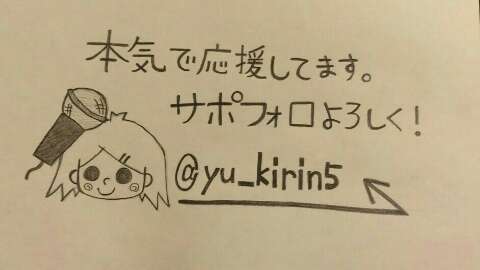 本気で応援してます。
サポフォロよろしく!
@yu_kirin5